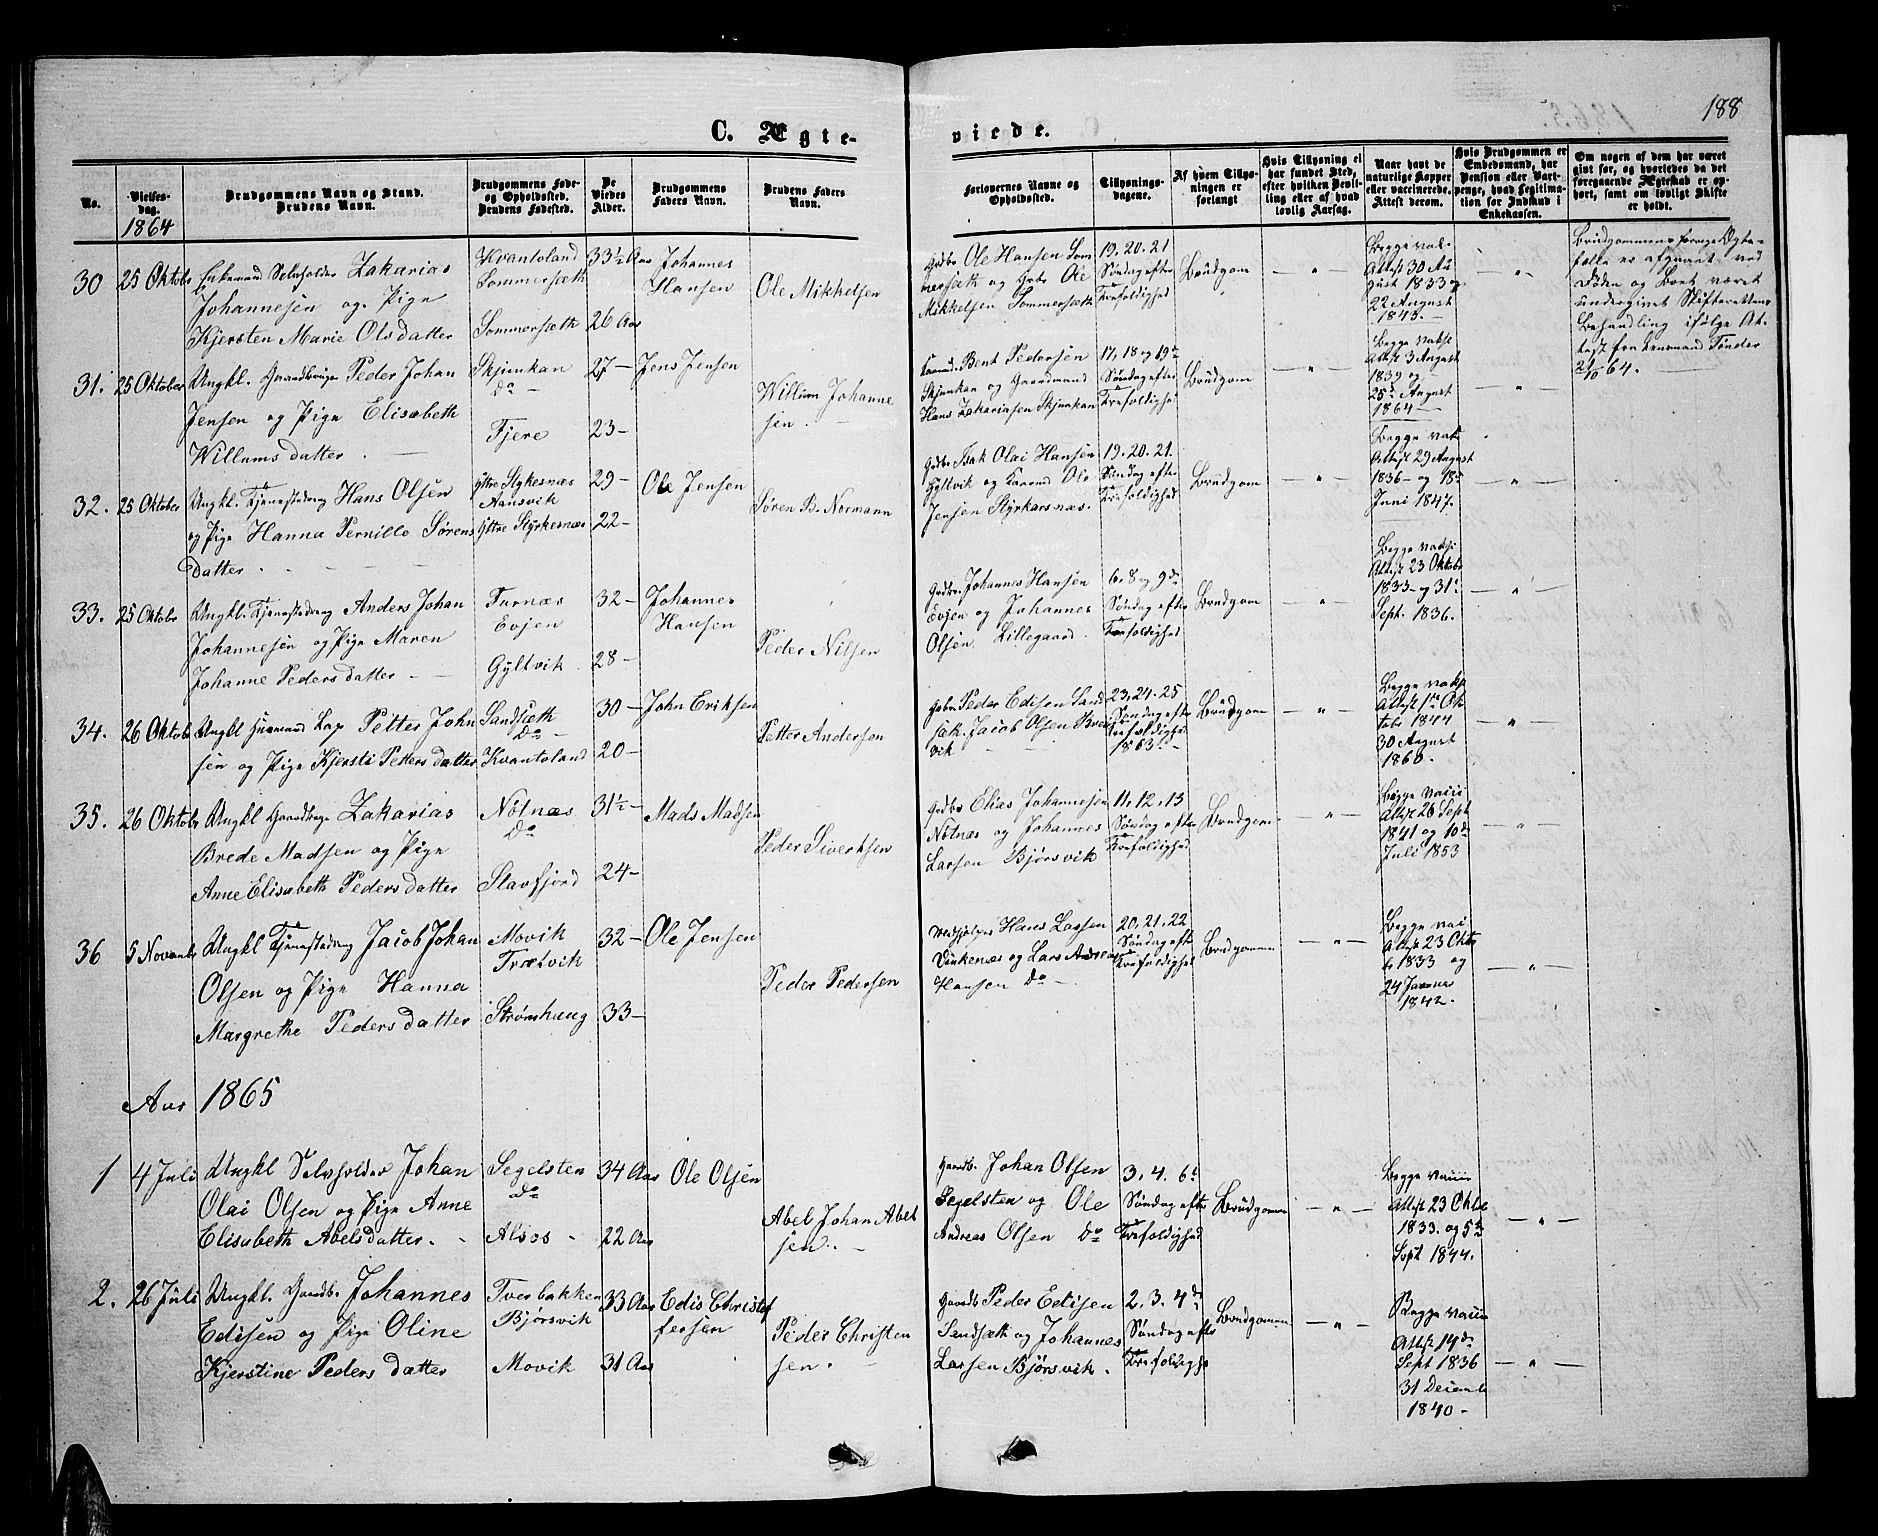 188
C. Ægte-
viede.
No.
Vielses-
dag.
1864
Brudgommens Navn og Stand.
Brudens Navn.
Brudgommens Føde-
og Opholdssted.
Brudens Fødested.
De
Viedes
Alder.
Brudgommens
Faders Navn.
Brudens Faders
Navn.
Forlovernes Navne og
Opholdssted.
Tillysnings-
dagene.
Af hvem Tillys-
ningen er
forlangt
Hvis Tillysning ei
har fundet Sted,
efter hvilken Bevil-
ling eller af hvad
lovlig Aarsag.
Naar havt de
naturlige Kopper
eller vaccinerede.
Attest derom.
Hvis Brudgommen er
Embedsmand, har
Pension eller Vart-
penge, hvad Legitima-
tion for Indskud i
Enkekassen.
Om nogen af dem har været
gift før, og hvorledes da det
foregaaende Ægteskab er op-
hørt, samt om lovligt Skifte
er holdt.
30
25 Oktobr
Enkemand Selvholder Zakarias
Johannesen og Pige
Kjersten Marie Olsdatter
Kvantoland
Sommersæth
Sommersæth
33½ Aar
26 Aar
Johannes
Hansen
Ole Mikkelsen
Gedbr Ole Hansen Som
mersæth og Gbr Ole
Mikkelsen Sommersæth
19. 20. 21
Søndag efter
Trefoldighed
Brudgom
— " —
Begge vak.
Attest 30 Au
gust 1833 og
22 August
1843. —
"
Brudgommens forrige Ægte-
fælle er afgaaet ved
Døden og Boet været
undergivet Skifterettens
Behandling ifølge At-
test fra Lensmand Tønder
21/10 64. —
31.
25 Oktober
Ungkl. Gaardbruger Peder Johan
Jensen og Pige Elisabeth
Willumsdatter . —
Skjunkan
do —
Fjere
27 —
23 —
Jens Jensen
Willum Johanne
sen . —
Bent Pedersen
Skjunkan og Gaardmand
Hans Zakariasen Skjunkan
17, 18 og 19de
Søndag efter
Trefoldighed
Brudgom
— " —
Begge vakse
Attest 3 August
1839 og
25de August
1864 —
— " —
32.
25 Oktober
Ungkl. Tjenestedreng Hans Olsen
og Pige Hanna Pernille Sørens
datter . — — —
Ytre Stykesnæs
Aansvik
Yttre Styrkesnæs
29 —
22 —
Ole Jensen
Søren B. Normann
Gedbr Isak Olai Hansen
Gyltvik og Ole
Jensen Styrkarsnæs.
19. 20. 21.
Søndag efter
Trefoldighed
Brudgom
— " —
Begge vak
Attest 29 August
1836 — og 18de
Juni 1847.
— " —
33.
25 Oktobr
Ungkl. Tjenestedreng Anders Johan
Johannesen og Pige Maren
Johanne Pedersdatter —
Furnæs
Evjen
Gyltvik
32 —
28 —
Johannes
Hansen
Peder Nilsen
Gedbr. Johannes Hansen
Evjen og Johannes
Olsen Lillegaard.
6. 8 og 9de
Søndag efter
Trefoldighed
Brudgom
— " —
Begge vakse
Attest 23 Oktobr
1833 — og 31te
Sept. 1836.
— " —
34.
26 Oktobr
Ungkl Huusmand Lap Petter John
sen og Pige Kjersti Pettersdatter
Sandsæth
Do —
Kvantoland
30 —
20 —
John Eriksen
Petter Andersen
Gebr Peder Edisen Sand
sæk. Jacob Olsen Brei
vik — —
23, 24. 25
Søndag efter
Trefoldighed
1863. —
Brudgom
— " —
Begge vakse
Attest 1ste Ok
tobr 1844
30 August
1860.
— " —
35.
26 Oktobr
Ungkl Gaardbruger Zakarias
Brede Madsen og Pige
Anne Elisabeth Pedersdatter
Nótnæs
Do
Slavfjord
31½ —
24 —
Mads Madsen
Peder Sivertsen
Gedbr Elias Johannesen
Nótnæs og Johannes
Larsen Bjørsvik
11, 12, 13
Søndag efter
Trefoldighed
Brudgom
— " —
Begge vacci
Attest 26 Sept
1841 og 10de
Juli 1853
— " —
36
5 Novembr
Ungkl Tjenestedreng Jacob Johan
Olsen og Pige Hanna
Margrethe Pedersdatter
Movik
Trætvik
Strømhaug
32 —
33 —
Ole Jensen
Peder Pedersen
Medhjælper Hans Larsen
Vinkenæs og Lars Andreas
Hansen do —
20, 21, 22
Søndag efter
Trefoldighed
Brudgommen
— " —
Begge vacci
Attest 23 Okto
br 1833 og
24 Januar
1842.
— " —
Aar 1865
1
4 Juli
Ungkl Selvholder Johan
Olai Olsen og Pige Anne
Elisabeth Abelsdatter. —
Segelsten
do
Alsos —
34 Aar
22 Aar
Ole Olsen
Abel Johan Abel
sen. —
Gaardb. Johan Olsen
Segelsten og Ole
Andreas Olsen do
3. 4. 6te
Søndag efter
Trefoldighed
Brudgommen
— " —
Begge vacci
Attest 23 Oktbr
1833. og 5te
Sept 1844.
— " —
2.
26 Juli
Ungkl. Gaardb. Johannes
Edisen og Pige Oline
Kjerstine Pedersdatter
Tverbakken
Bjørsvik
Movik
33 Aar
31 Aar
Edis Christof
fersen
Peder Christen
sen. —
Gaardb Peder Edisen
Sandsæth og Johannes
Larsen Bjørsvik .
2. 3. 4de
Søndag efter
Trefoldighed
Brudgommen
— " —
Begge vacci
Attest 14de
Sept 1836
31 Decemb
1840 —
— " —